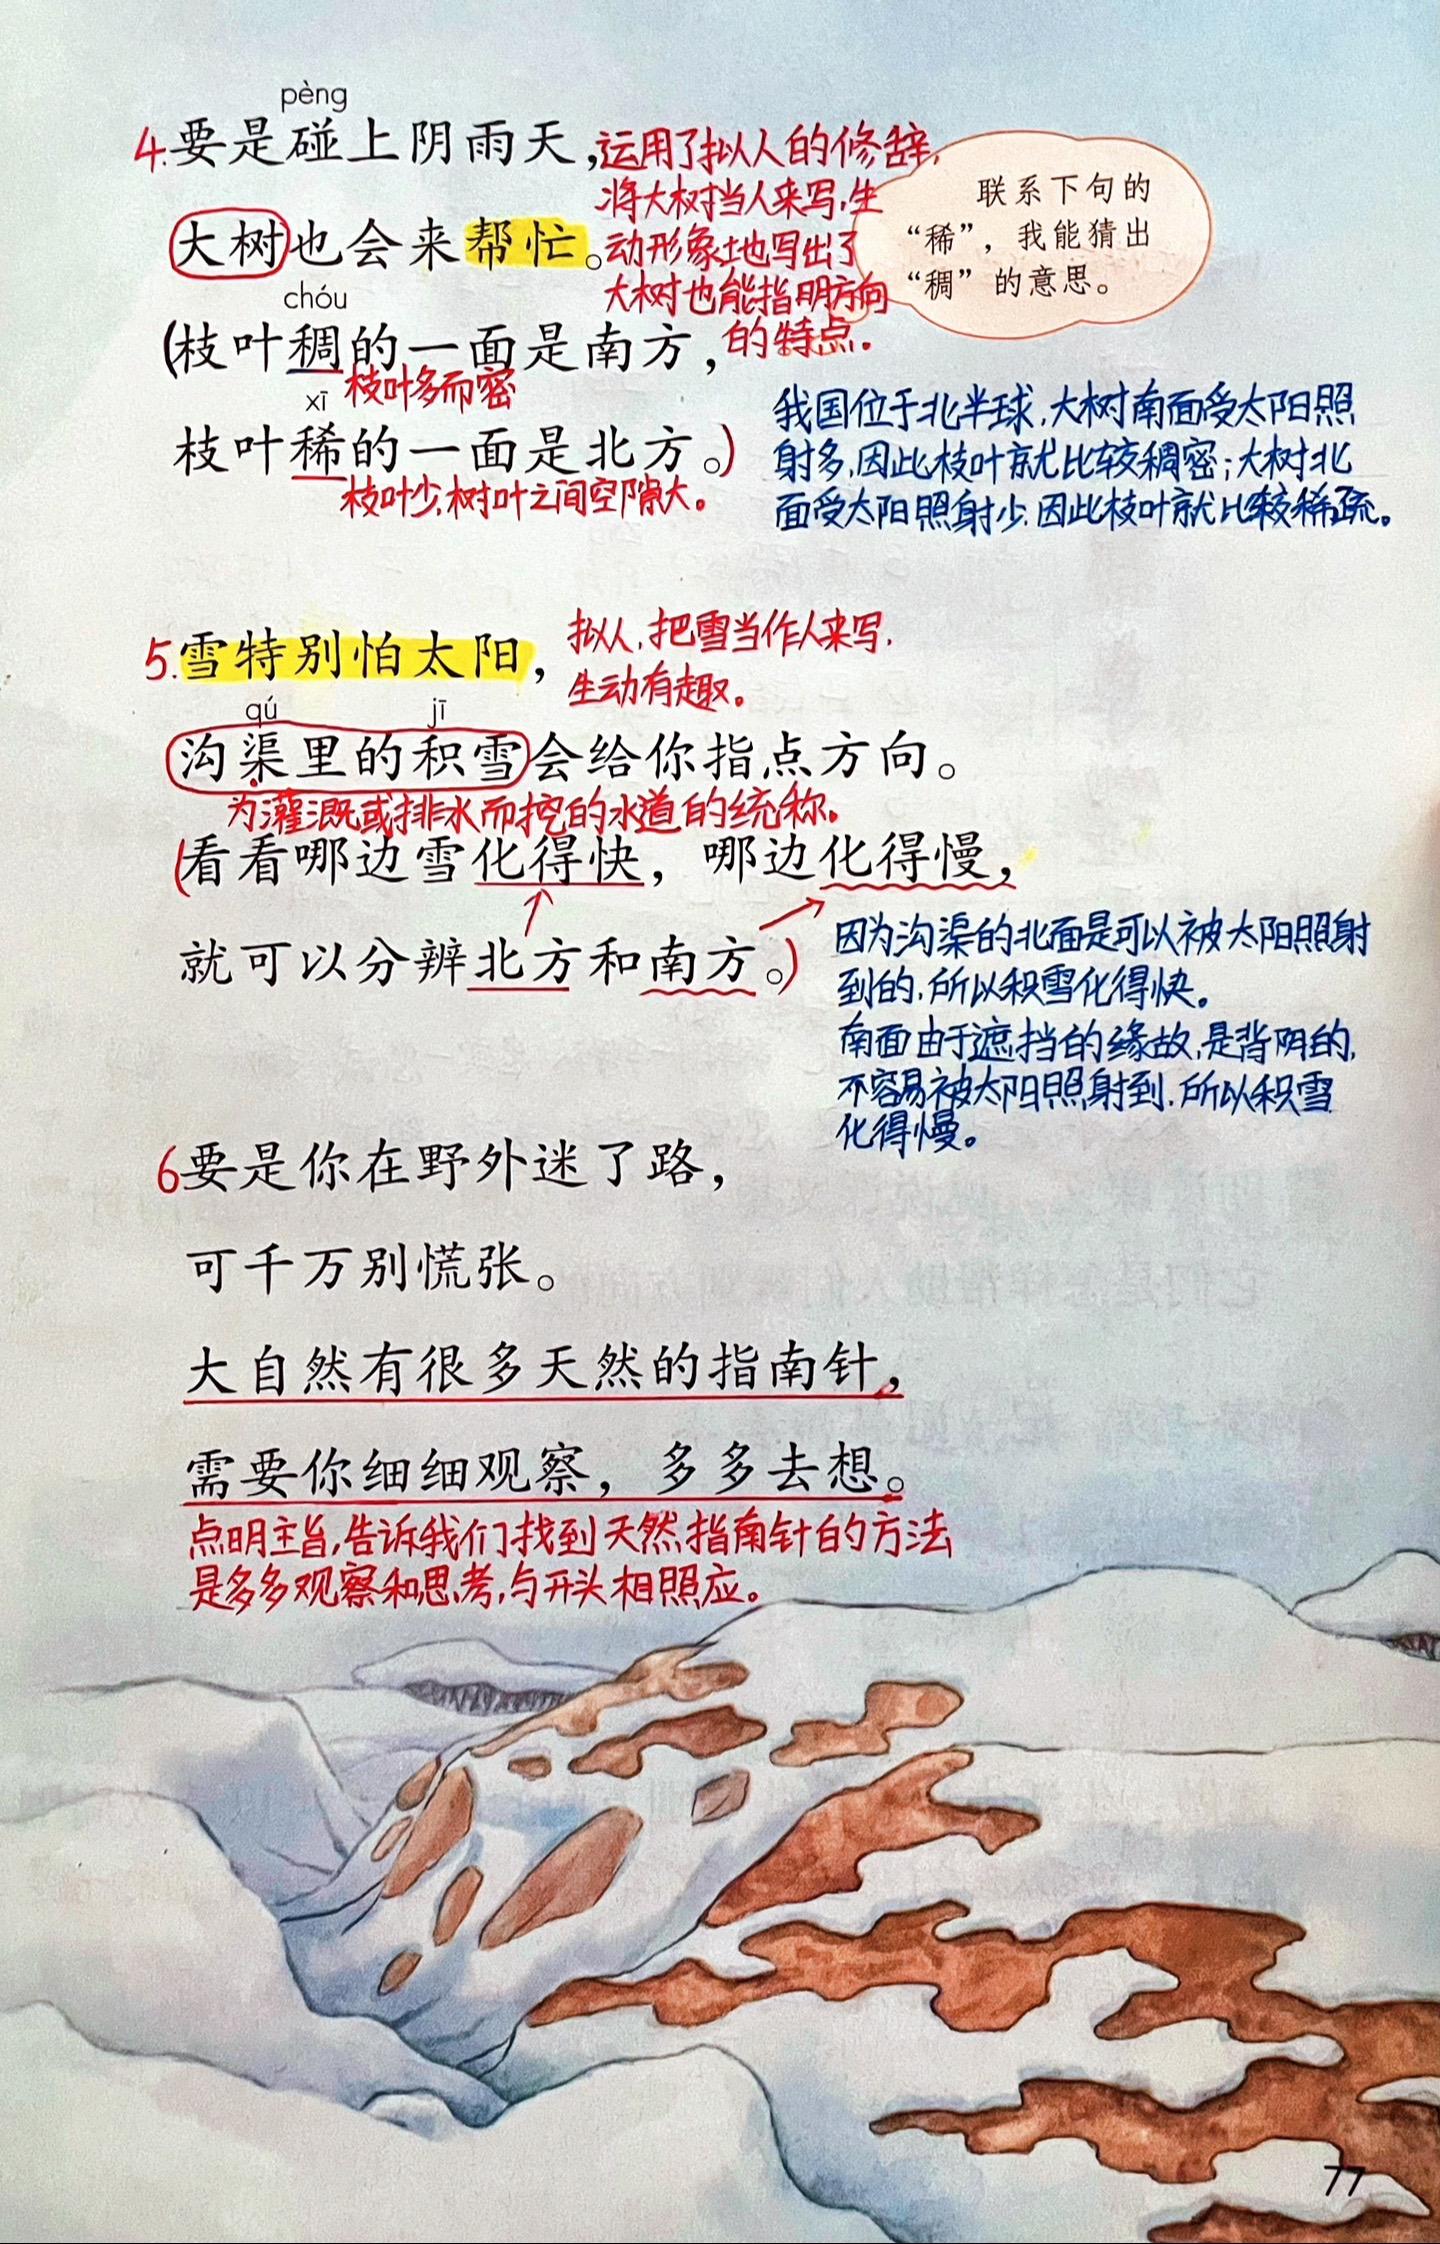 pèng
4.要是碰上阴雨天，
运用了拟人的修辞，
将大树当人来写，生
动形象地写出了
大树也能指明方向
的特点.
联系下句的
“稀”，我能猜出
“稠”的意思。
大树也会来帮忙。
chóu
(枝叶稠的一面是南方，
枝叶多而密
xī
枝叶稀的一面是北方。)
枝叶少,树叶之间空隙大。
我国位于北半球,大树南面受太阳照
射多,因此枝叶就比较稠密;大树北
面受太阳照射少,因此枝叶就比较稀疏。
5.雪特别怕太阳，
拟人,把雪当作人来写,
生动有趣。
qú jī
沟渠里的积雪会给你指点方向。
为灌溉或排水而挖的水道的统称.
(看看哪边雪化得快，哪边化得慢，
就可以分辨北方和南方。)
因为沟渠的北面是可以被太阳照射
到的,所以积雪化得快。
南面由于遮挡的缘故,是背阴的,
不容易被太阳照射到,所以积雪
化得慢。
6要是你在野外迷了路，
可千万别慌张。
大自然有很多天然的指南针，
需要你细细观察，多多去想。
点明主旨,告诉我们找到天然指南针的方法
是多多观察和思考,与开头相照应。
77